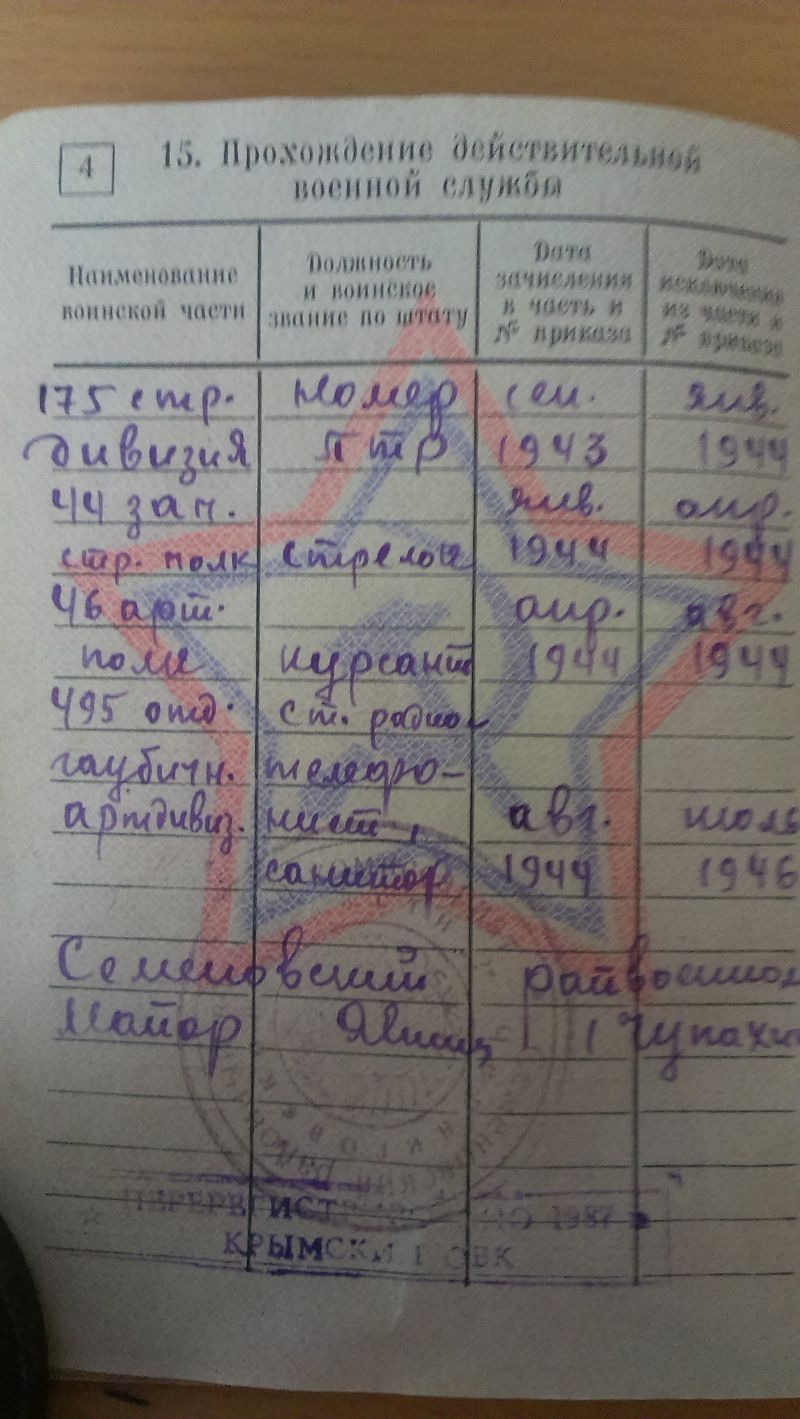 4
15. Прохождение действительной
военной службы
Наименование
воинской части
Должность
и воинское
звание по штату
Дата
зачисления
в часть и
№ приказа
Дата
исключения
из части и
№ приказа
175 стр. номер сен. янв.
дивизия ПТР 1943 1944
44 зап. янв. апр.
стр. полк стрелок 1944 1944
46 арт. апр. авг.
полк курсант 1944 1944
495 отд. ст. радио-
гаубичн. телефо-
артдивиз. нист, авг. июль
санитар 1944 1946
Семеновский райвоенком
Майор Чупахин
1987
КРЫМСКИ ОВК